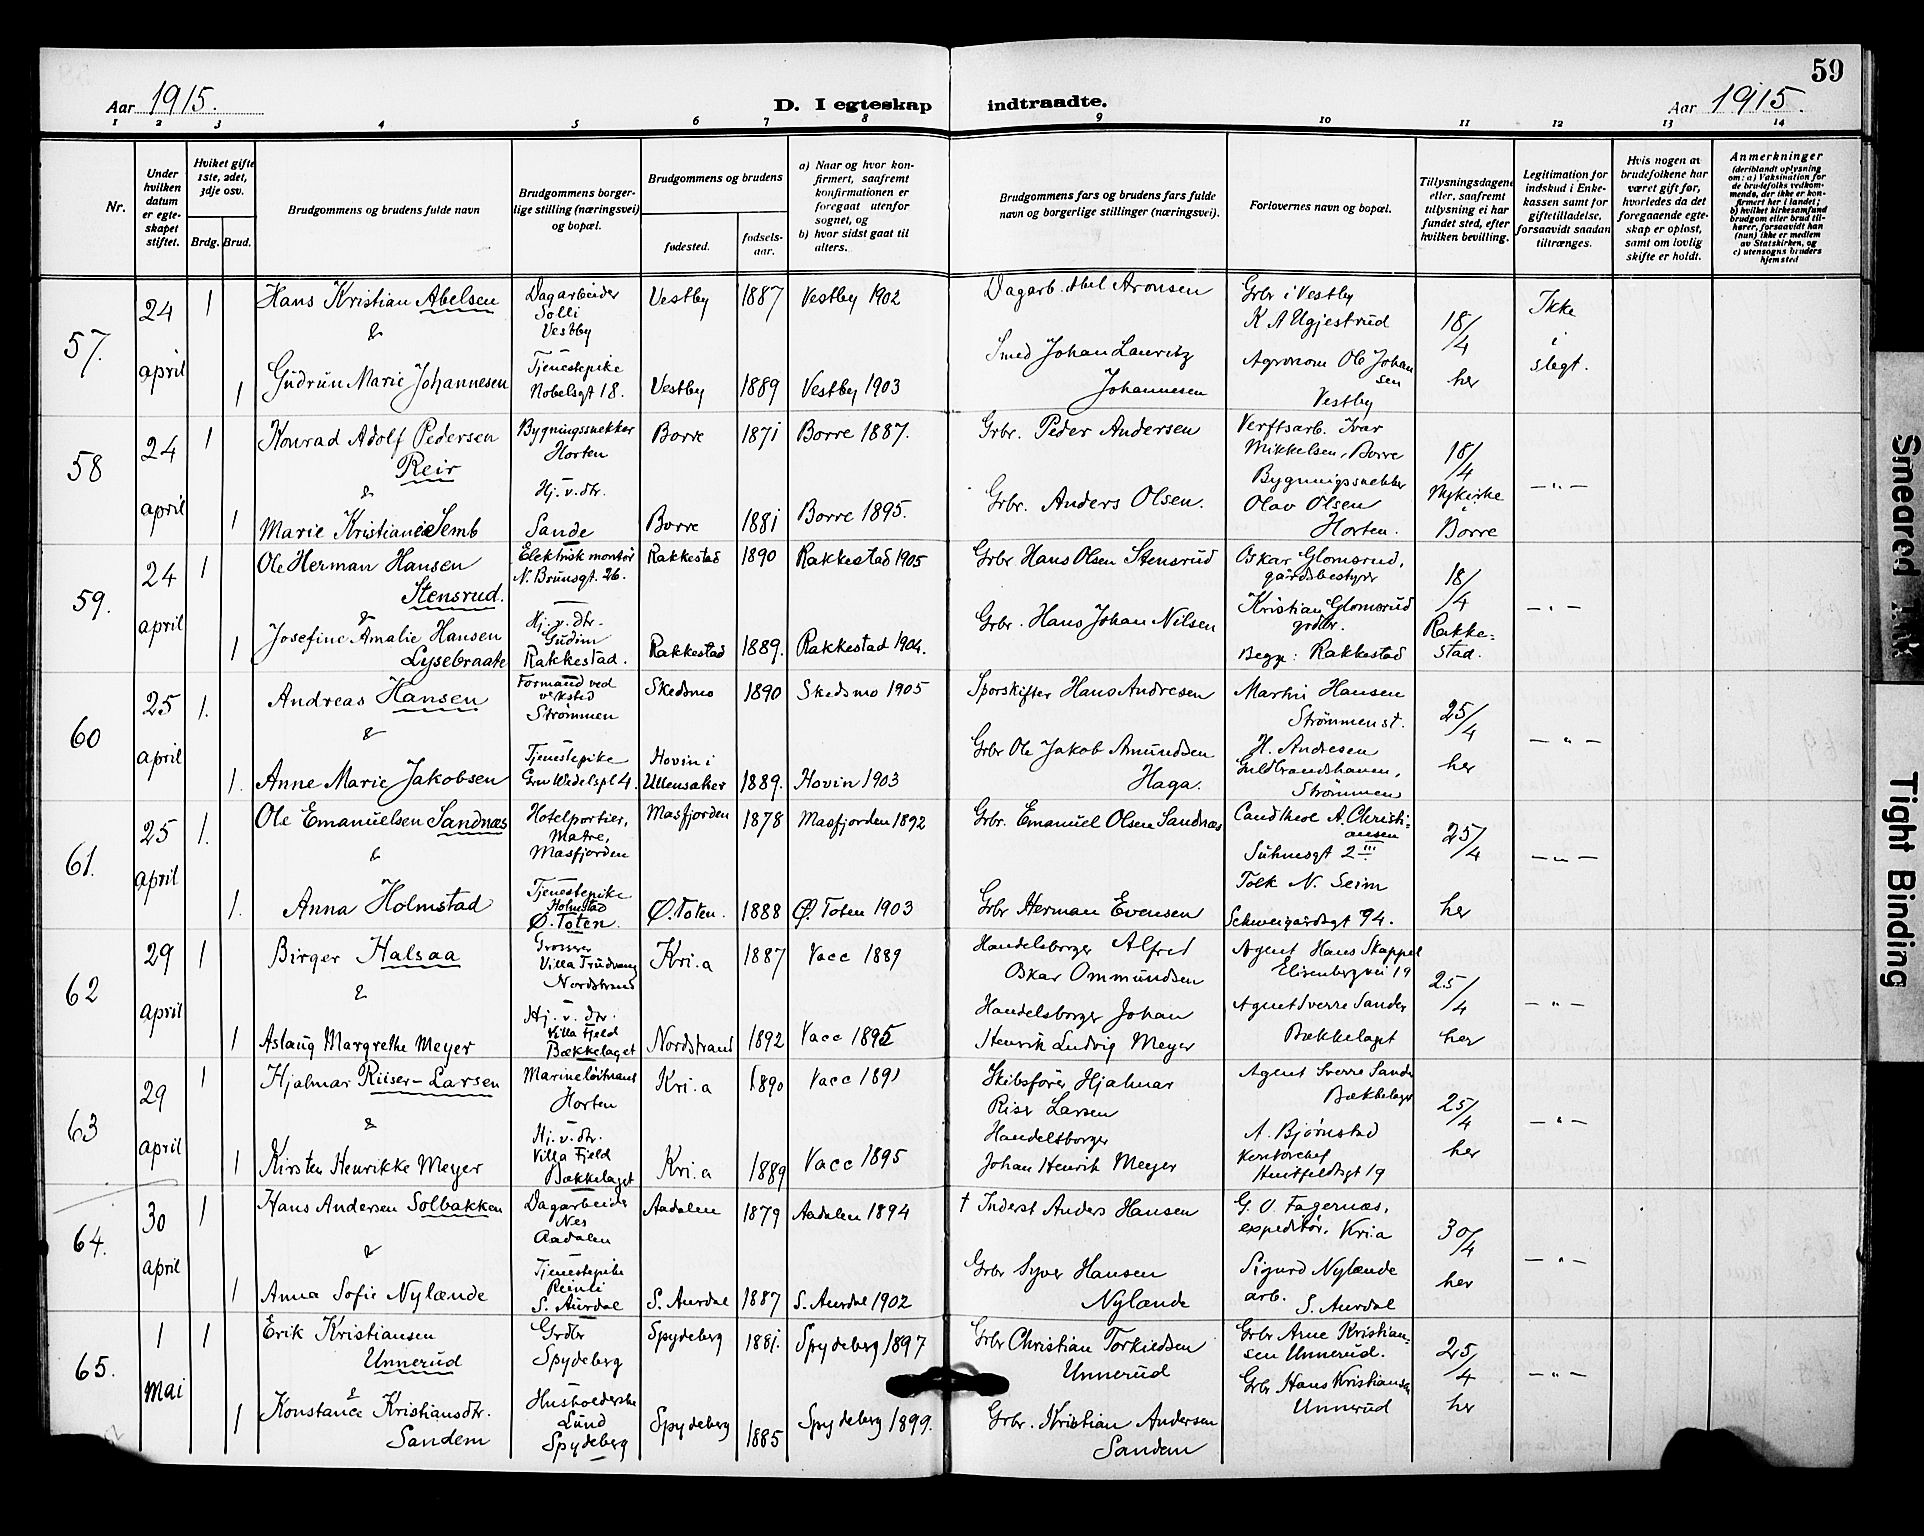 59
Aar 1915. D. I egteskap indtraadte. Aar 1915.
1 2 3 4 5 6 7 8 9 10 11 12 13 14
Nr.
Under hvilken datum er egteskapet stiftet.
Hvilket gifte 1ste, 2det, 3dje osv.
Brdg. Brud.
Brudgommens og brudens fulde navn
Brudgommens borgerlige stilling (næringsvei) og bopæl.
Brudgommens og brudens
fødested.
fødselsaar.
a) Naar og hvor konfirmert, saafremt konfirmationen er foregaat utenfor sognet, og
b) hvor sidst gaat til alters.
Brudgommens fars og brudens fars fulde navn og borgerlige stillinger (næringsvei).
Forlovernes navn og bopæl.
Tillysningsdagene eller, saafremt tillysning ei har fundet sted, efter hvilken bevilling.
Legitimation for indskud i Enkekassen samt for giftetilladelse, forsaavidt saadan tiltrænges.
Hvis nogen av brudefolkene har været gift før, hvorledes da det foregaaende egteskap er opløst, samt om lovlig skifte er holdt.
Anmerkninger
(deriblandt oplysning om: a) Vaksination for de brudefolks vedkommende, der ikke er konfirmert her i landet; b) hvilket kirkesamfund brudgom eller brud tilhører, forsaavidt han (hun) ikke er medlem av Statskirken, og c) utensogns bruders hjemsted
57. 24 april 1 Hans Kristian Abelsen Dagarbeider Solli Vestby Vestby 1887 Vestby 1902 Dagarb. Abel Aronsen Grbr i Vestby K A Ugjestrud 18/4 her Ikke i slegt.
&
1 Gudrun Marie Johannesen Tjenestepike Nobelsgt 18. Vestby 1889 Vestby 1903 Smed Johan Lauritz Johannesen Agronom Ole Johansen Vestby
58 24 april 1 Konrad Adolf Pedersen Reir Bygningssnekker Horten Borre 1871 Borre 1887. Grbr. Peder Andersen Verftsarb. Ivar Mikkelsen, Borre 18/4 Nykirke i Borre — " —
&
1 Marie Kristiane Semb Hj. v. dtr. Sande Borre 1881 Borre 1895. Grbr. Anders Olsen. Bygningssnekker Olav Olsen Horten.
59. 24 april 1 Ole Herman Hansen Stensrud. Elektrisk montør N. Brunsgt. 26. Rakkestad 1890 Rakkestad 1905 Grbr Hans Olsen Stensrud Oskar Glomsrud, gårdsbestyrer 18/4 Rakkestad. — " —
&
1 Josefine Amalie Hansen Lysebraate Hj. v. dtr. Gudim Rakkestad. Rakkestad 1889. Rakkestad 1904. Grbr. Hans Johan Nilsen Kristian Glomsrud grdbr. Begge: Rakkestad
60 25 april 1. Andreas Hansen Formand ved verksted Strømmen Skedsmo 1890 Skedsmo 1905 Sporskifter Hans Andresen Martin Hansen Strømmen st. 25/4 her — " —
&
1. Anne Marie Jakobsen Tjenestepike Grev Wedelspl 4. Hovin i Ullensaker 1889. Hovin 1903 Grbr Ole Jakob Amundsen Haga. H. Andresen Guldbrandshaven, Strømmen
61. 25 april 1. Ole Emanuelsen Sandnæs Hotelportier, Matre, Masfjorden Masfjorden 1878 Masfjorden 1892 Grbr. Emanuel Olsen Sandnæs Cand theol A. Christiansen Suhmsgt 2 III 25/4 her — " —
&
1. Anna Holmstad Tjenestepike Holmstad Ø. Toten. Ø. Toten. 1888 Ø. Toten 1903 Grbr Herman Evensen Tolk N. Seim Schweigårdsgt 94.
62 29 april 1 Birger Halsaa Grosser Villa Trudvang Nordstrand Kri.a 1887 Vacc 1889 Handelsborger Alfred Oskar Ommundsen Agent Hans Skappel Elisenbergvei 19 25/4 her — " —
&
1 Aslaug Margrethe Meyer Hj. v. dtr. Villa Fjeld Bækkelaget Nordstrand 1892 Vacc 1895 Handelsborger Johan Henrik Ludvig Meyer Agent Sverre Sander Bækkelaget
63 29 april 1 Hjalmar Riiser-Larsen Marineløitnant Horten Kri.a 1890 Vacc 1891 Skibsfører Hjalmar Riser Larsen Agent Sverre Sander Bækkelaget 25/4 her — " —
&
1 Kirsten Henrikke Meyer Hj. v. dtr. Villa Fjeld Bækkelaget Kri.a 1889 Vacc 1895 Handelsborger Johan Henrik Meyer A. Bjørnstad Kontorchef Huitfeldtsgt 19
64. 30 april 1 Hans Andersen Solbakken Dagarbeider Nes Aadalen Aadalen 1879 Aadalen 1894 † Inderst Anders Hansen G. O. Fagernæs, expeditør, Kria 30/4 her — " —
&
1 Anna Sofie Nylænde Tjenestepike Reinli S. Aurdal S. Aurdal 1887 S. Aurdal 1902 Grbr Syver Hansen Nylænde Sigurd Nylænde arb. S. Aurdal
65. 1 mai 1 Erik Kristiansen Unnerud Grdbr Spydeberg Spydeberg 1881. Spydeberg 1897 Grbr Christian Torkildsen Unnerud Grbr Arne Kristiansen Unnerud. 25/4 her — " —
&
1 Konstance Kristiansdtr. Sandem Husholderske Lund Spydeberg Spydeberg 1885 Spydeberg 1899. Grbr. Kristian Andersen Sandem Grbr Hans Kristiansen Unnerud
Smeared Ink
Tight Binding